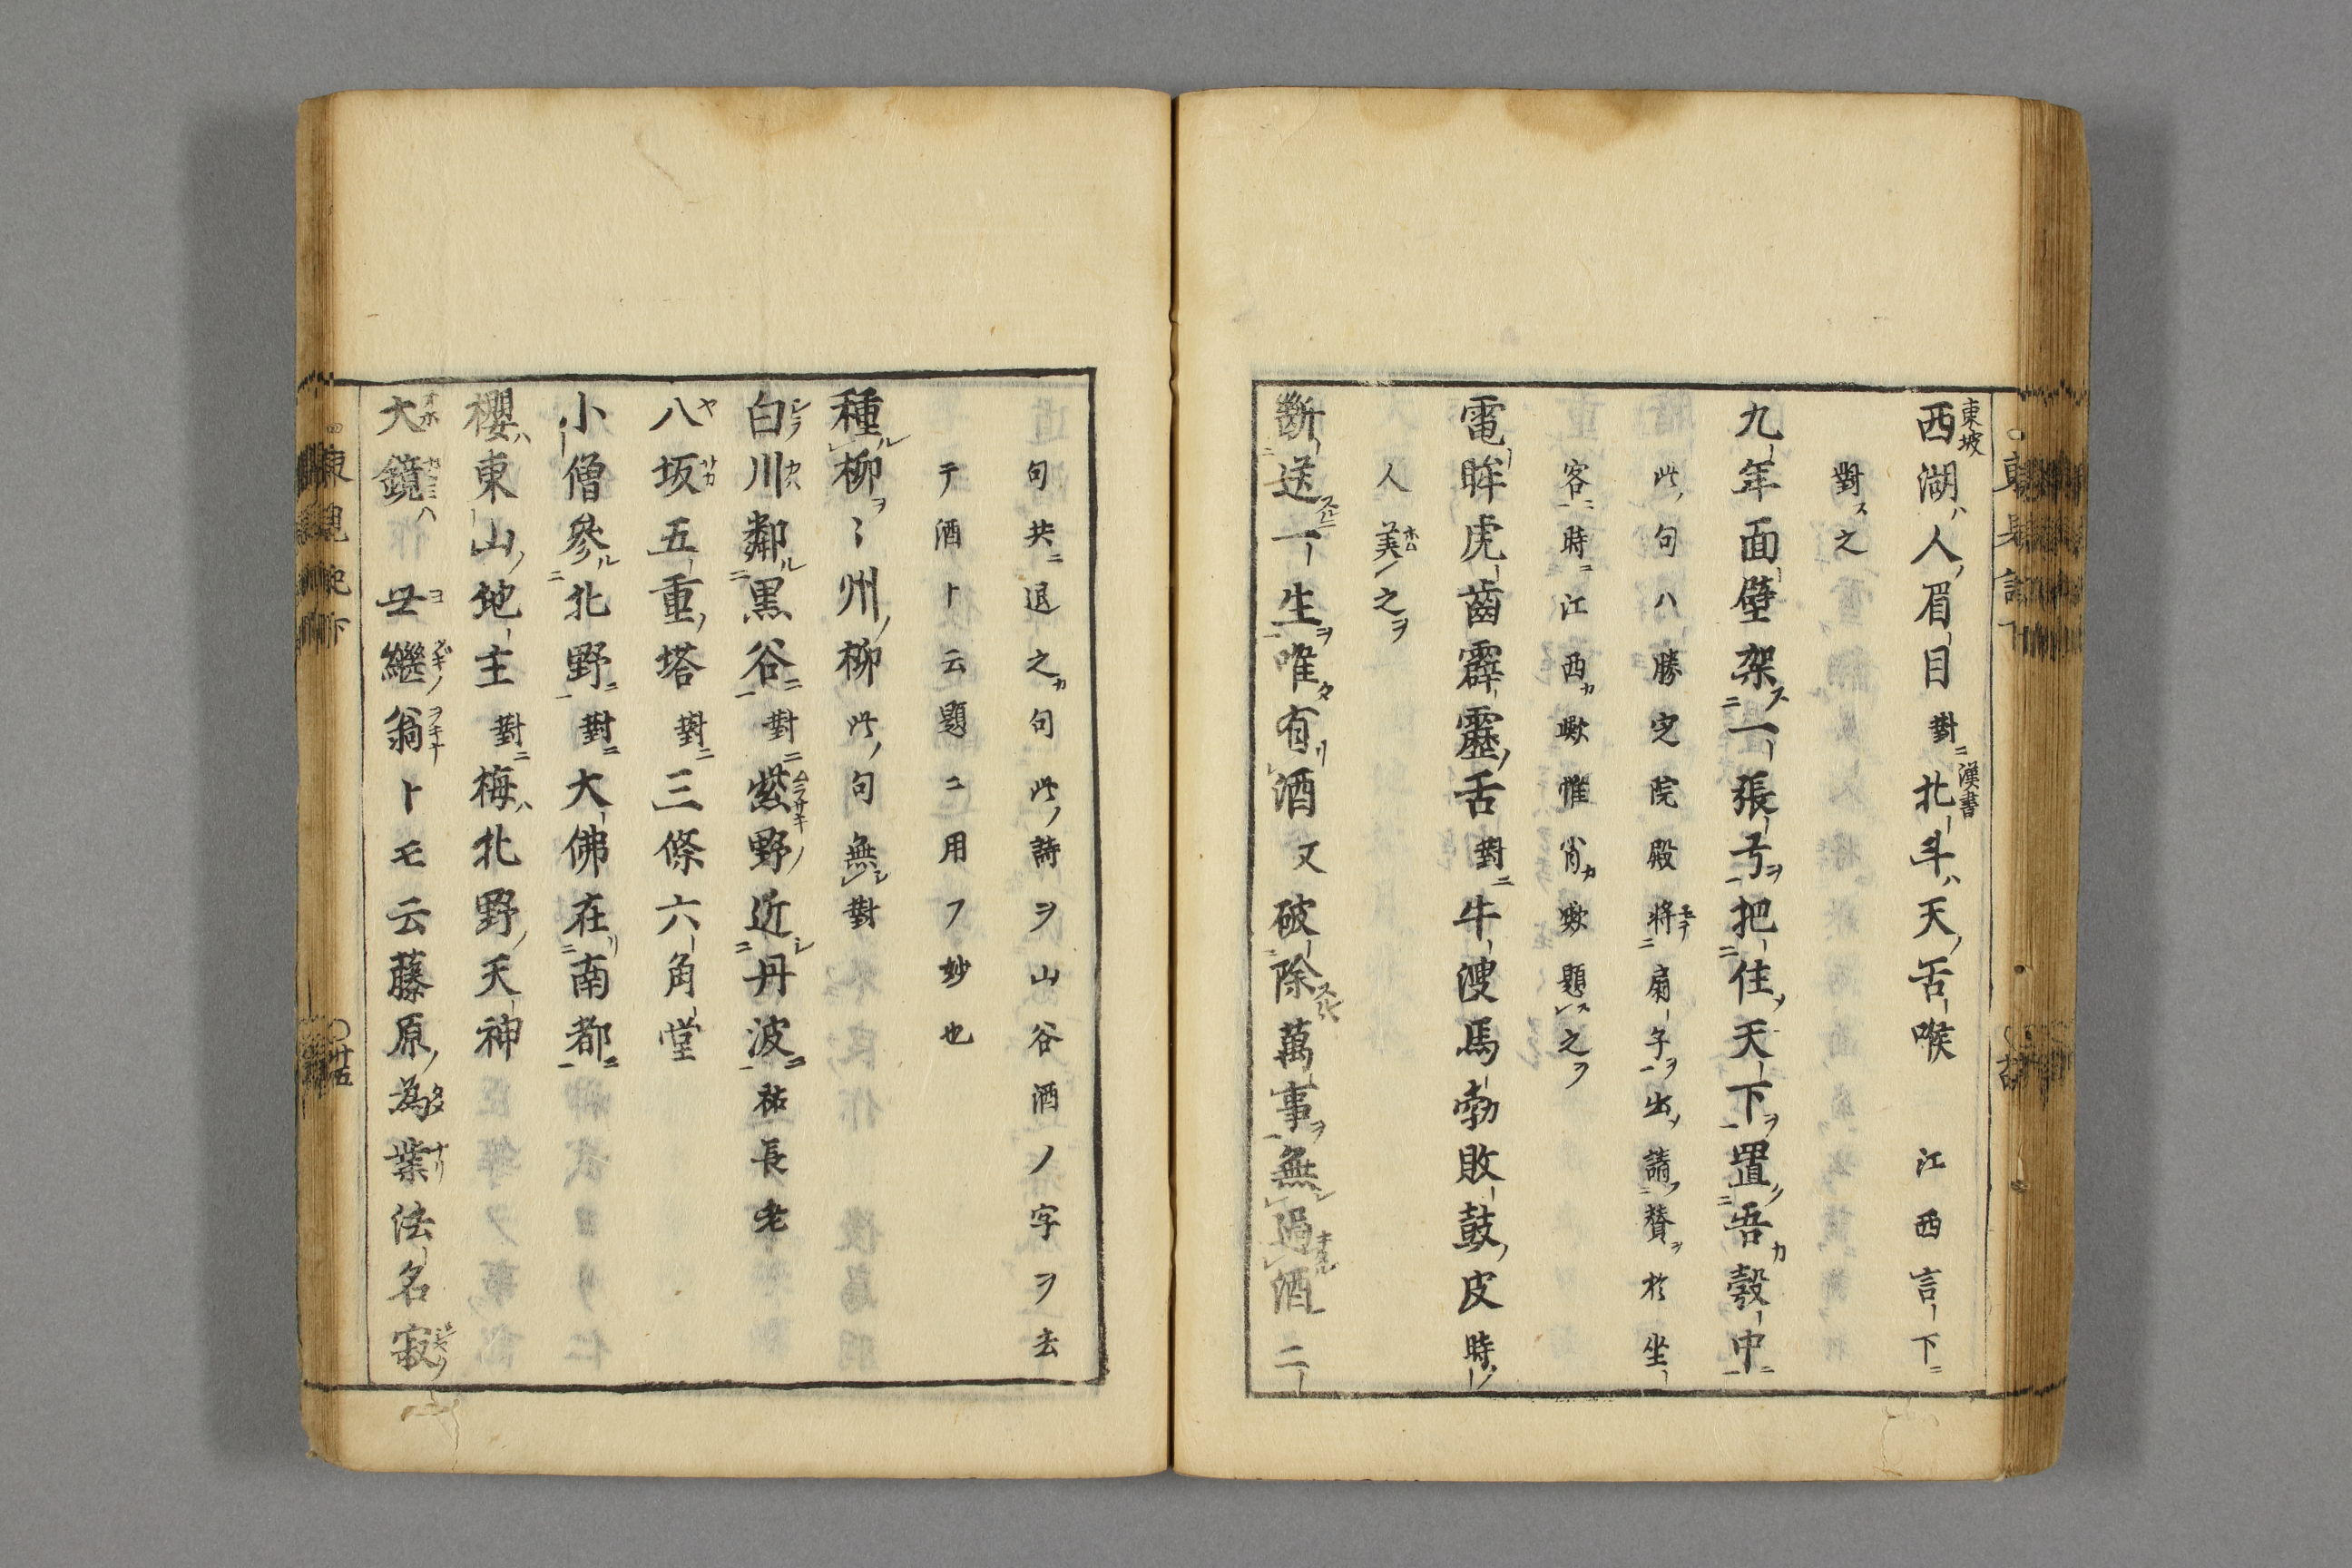 西湖ハ人ノ眉目對ニ北斗ハ天ノ舌喉 江西言下ニ
對ス之
九年面壁架ス一張弓ヲ把住ノ天下ヲ置ク吾カ彀中ニ
此ノ句ハ勝定院殿將テ扇子ヲ出ノ請フ賛ヲ於坐
客ニ時ニ江西カ歟惟肖カ歟題ス之ヲ
電眸虎齒霹靂ノ舌對ニ牛溲馬勃敗鼓ノ皮時ノ
人美ム之ヲ
斷送一生ヲ唯タ有リ酒又破除萬事ヲ無シ過ルハ酒二
句共ニ退之カ句此ノ詩ヲ山谷酒ノ字ヲ去
テ酒ト云題ニ用フ妙也
種ル柳ヲ〻州ノ柳此ノ句無シ對
白川鄰ル黒谷ニ對ニ紫野ノ近シ丹波ニ祐長老
八坂五重ノ塔對ニ三條六角堂
小僧參ル北野ニ對ニ大佛在リ南都ニ
櫻ハ東山ノ地主對ニ梅ハ北野ノ天神
大鏡ハ 世繼ノ翁トモ云藤原ノ為業法名寂